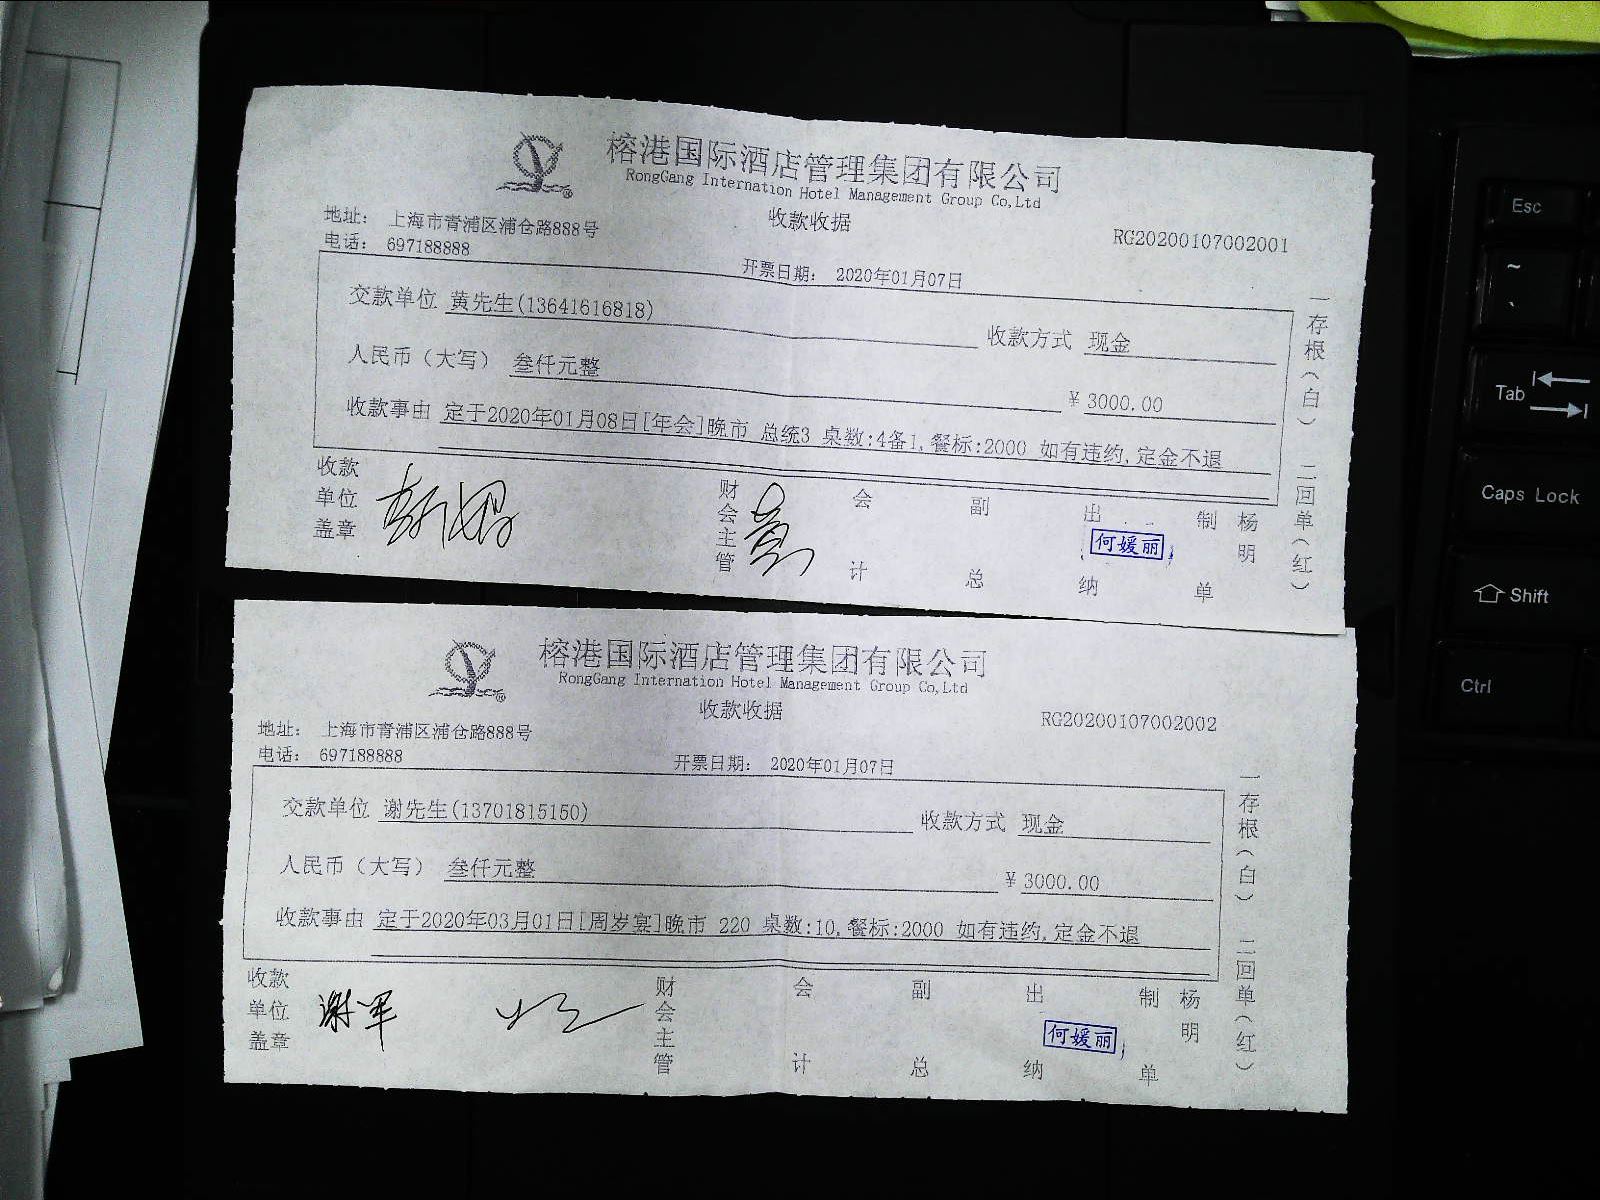 榕港国际酒店管理集团有限公司
RongGang Internation Hotel Management Group Co,Ltd
收款收据
地址： 上海市青浦区浦仓路888号
RG20200107002001
电话： 697188888
开票日期： 2020年01月07日
交款单位 黄先生(13641616818)
收款方式 现金
人民币（大写） 叁仟元整
¥ 3000.00
收款事由 定于2020年01月08日[年会]晚市 总统3 桌数:4备1,餐标:2000 如有违约,定金不退
收款单位盖章
财会主管
会计
副总
出纳
何媛丽
制单
杨明
一存根（白） 二回单（红）
榕港国际酒店管理集团有限公司
RongGang Internation Hotel Management Group Co,Ltd
收款收据
地址： 上海市青浦区浦仓路888号
RG20200107002002
电话： 697188888
开票日期： 2020年01月07日
交款单位 谢先生(13701815150)
收款方式 现金
人民币（大写） 叁仟元整
¥ 3000.00
收款事由 定于2020年03月01日[周岁宴]晚市 220 桌数:10,餐标:2000 如有违约,定金不退
收款单位盖章
财会主管
会计
副总
出纳
何媛丽
制单
杨明
一存根（白） 二回单（红）
Esc
~
`
Tab
Caps Lock
Shift
Ctrl